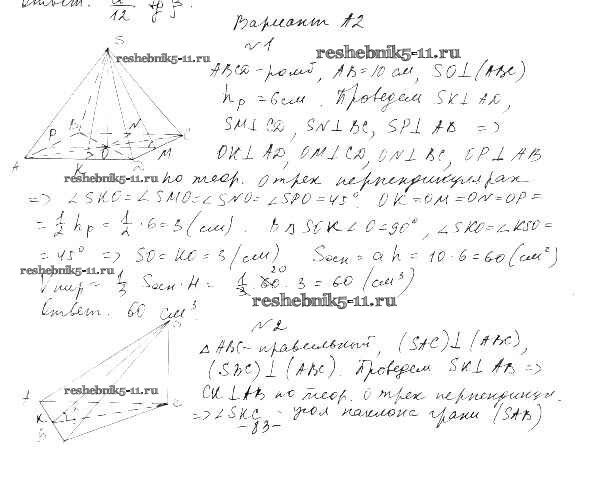 Ответ.
12
Вариант А2
№1
reshebnik5-11.ru
reshebnik5-11.ru
ABCD - ромб, AB = 10 см, SO ⊥ (ABC)
hр = 6 см. Проведем SK ⊥ AD,
SM ⊥ CD, SN ⊥ BC, SP ⊥ AB =>
OK ⊥ AD, OM ⊥ CD, ON ⊥ BC, OP ⊥ AB
S
P B N C
A K O D M
reshebnik5-11.ru
по теор. о трех перпендикулярах
=> ∠SKO = ∠SMO = ∠SNO = ∠SPO = 45°. OK = OM = ON = OP =
= 1/2 hр = 1/2 · 6 = 3 (см). В Δ SOK ∠O = 90°, ∠SKO = ∠KSO =
= 45° => SO = KO = 3 (см) Sосн = ah = 10 · 6 = 60 (см²)
reshebnik5-11.ru
Vпир = 1/3 Sосн · H = 1/3 · 60 · 3 = 60 (см³)
20
Ответ. 60 см³.
reshebnik5-11.ru
№2
Δ ABC - правильный, (SAC) ⊥ (ABC),
(SBC) ⊥ (ABC). Проведем SK ⊥ AB =>
CK ⊥ AB по теор. о трех перпендикул.
=> ∠SKC - угол наклона грани (SAB)
reshebnik5-11.ru
S
K
C
B
-83-